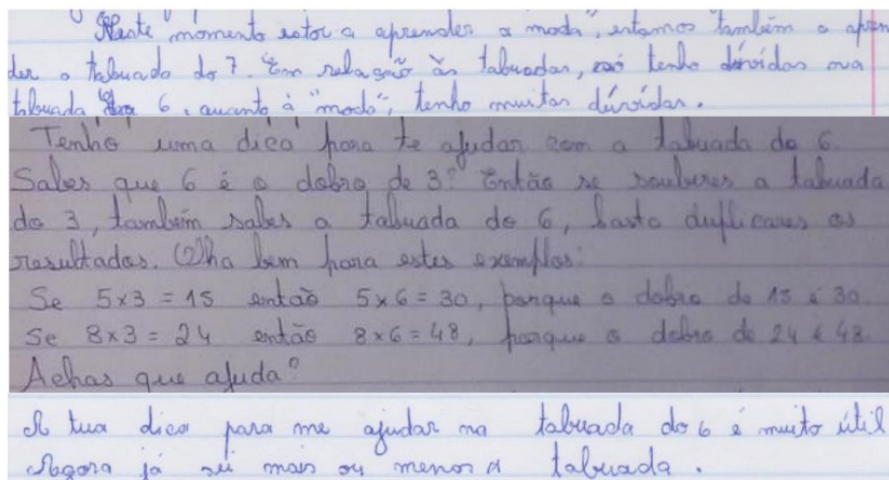 Neste momento estou a aprender a "moda", estamos também a apren
der a tabuada do 7. Em relação às tabuadas, só tenho dúvidas na
tabuada do 6, quanto à "moda", tenho muitas dúvidas.
Tenho uma dica para te ajudar com a tabuada do 6.
Sabes que 6 é o dobro de 3? Então se souberes a tabuada
do 3, também sabes a tabuada do 6, basta duplicares os
resultados. Olha bem para estes exemplos:
Se 5x3 = 15 então 5x6 = 30, porque o dobro de 15 é 30.
Se 8x3 = 24 então 8x6 = 48, porque o dobro de 24 é 48.
Achas que ajuda?
A tua dica para me ajudar na tabuada do 6 é muito útil
Agora já sei mais ou menos a tabuada.